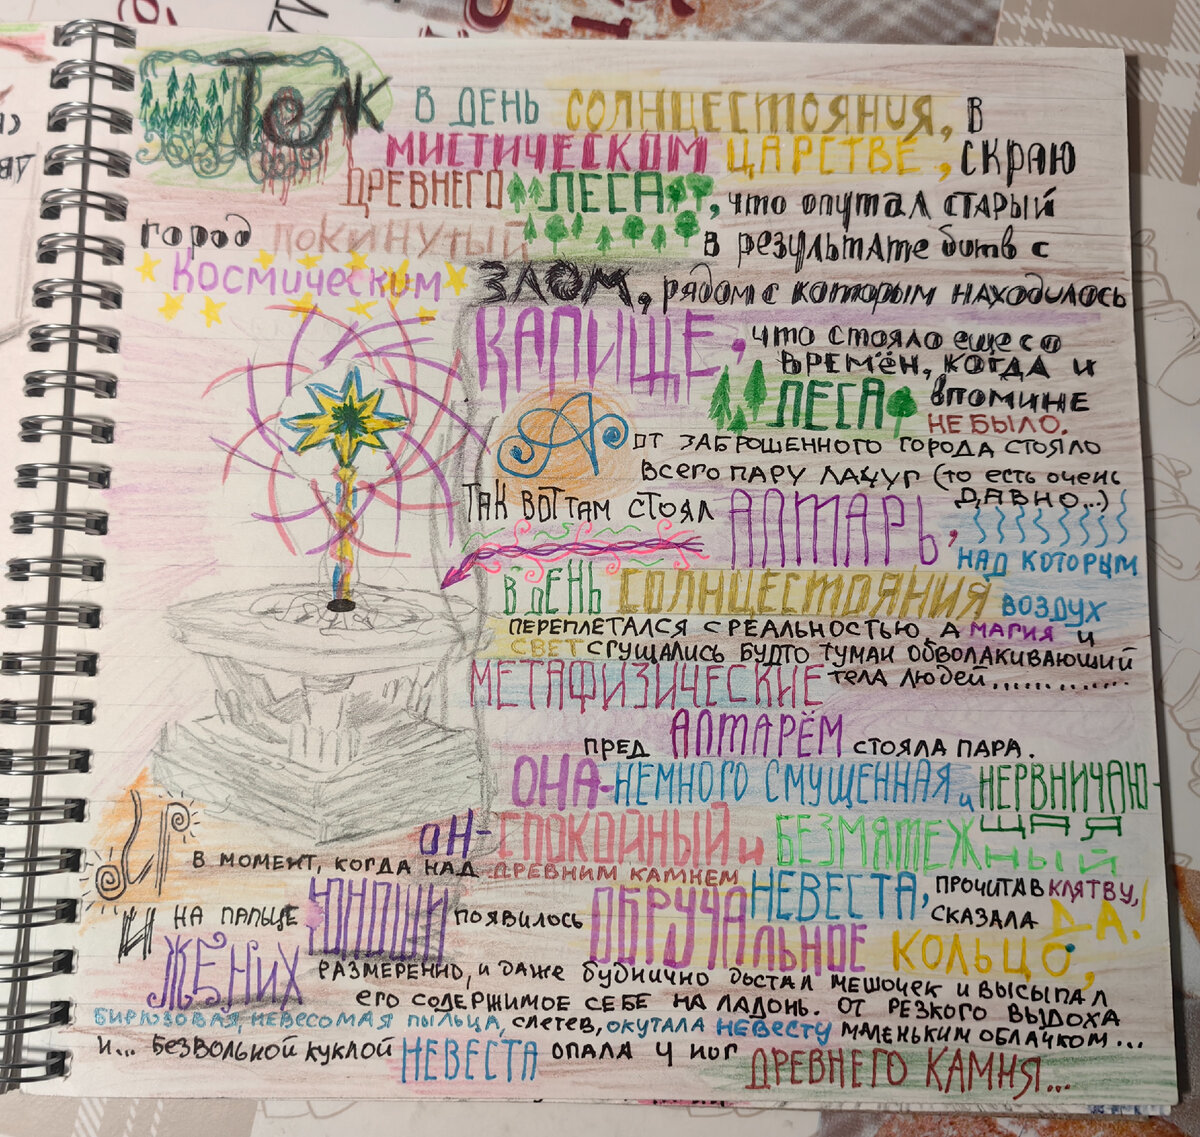 Так в день солнцестояния, в
мистическом царстве, с краю
древнего леса, что опутал старый
город покинутый в результате битв с
Космическим злом, рядом с которым находилось
капище, что стояло еще со
времён, когда и
леса впомине
не было.
А от заброшенного города стояло
всего пару лачуг (то есть очень
давно...)
Так вот там стоял алтарь,
над которым
в день солнцестояния воздух
переплетался с реальностью, а магия и
свет сгущались будто туман обволакивающий
метафизические тела людей..............
пред алтарём стояла пара.
Она-немного смущенная и нервничаю-
щая
он-спокойный и безмятежный
И в момент, когда над древним камнем
невеста, прочитав клятву,
сказала да!
и на пальце юноши появилось обручальное кольцо,
жених размеренно, и даже буднично достал мешочек и высыпал
его содержимое себе на ладонь. от резкого выдоха
бирюзовая, невесомая пыльца, слетев, окутала невесту маленьким облачком...
и... безвольной куклой невеста опала у ног древнего камня...